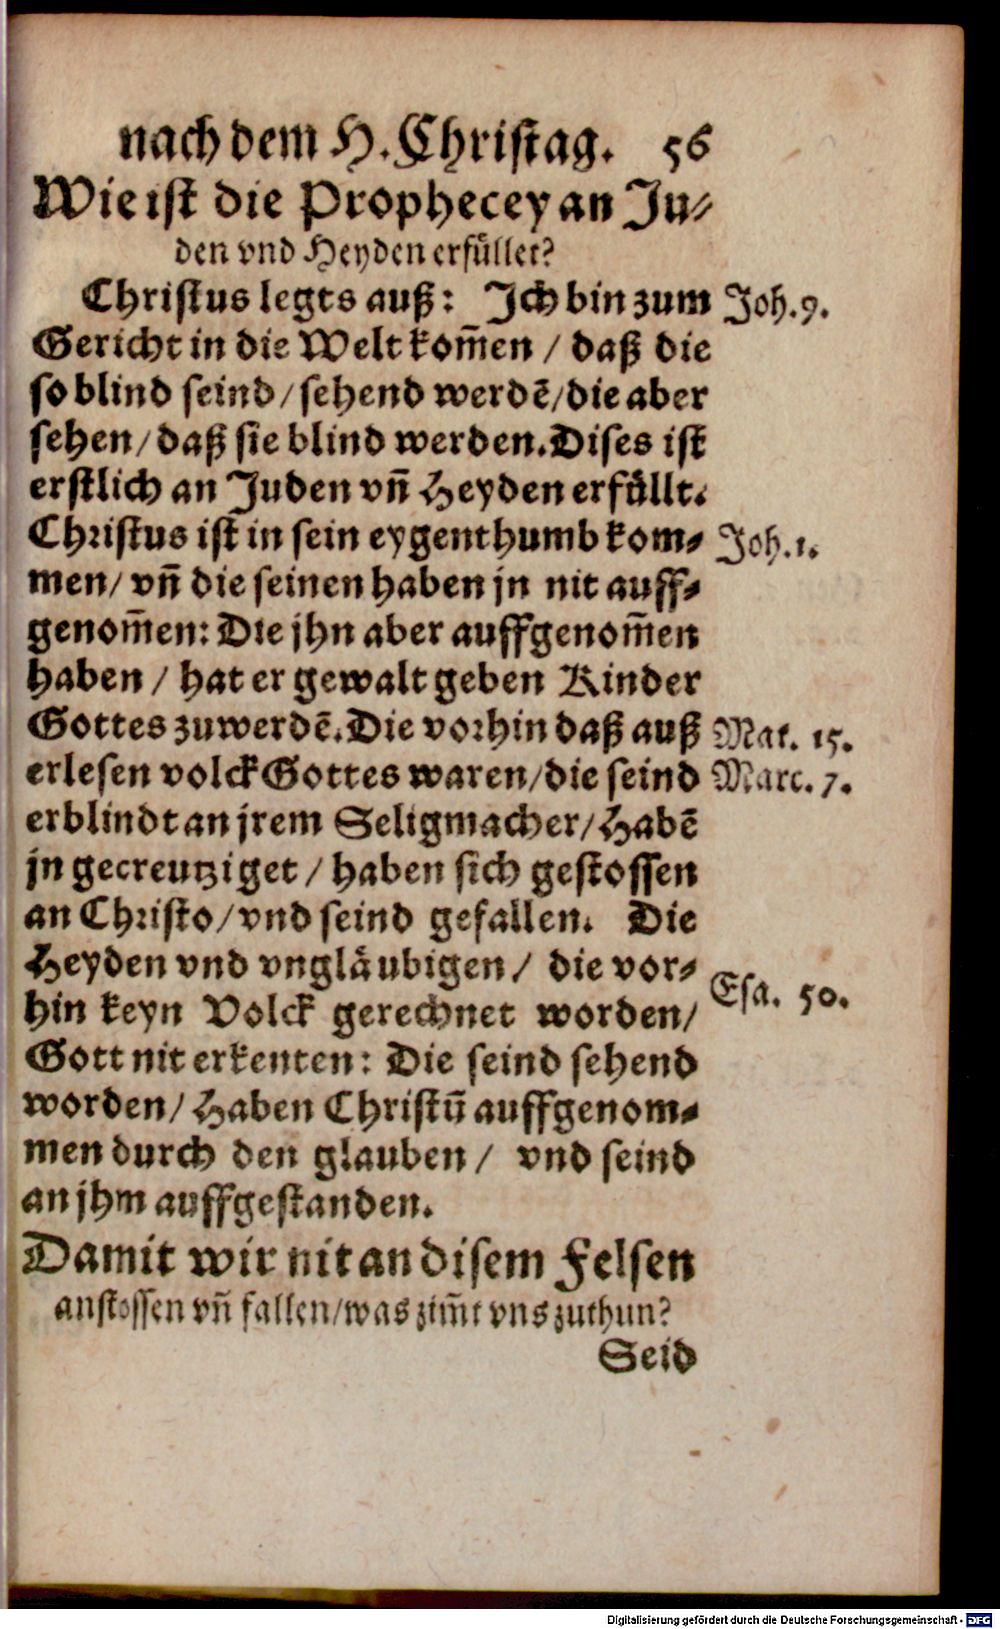 nach dem H. Christag. 56
Wie ist die Prophecey an Ju⸗
den vnd Heyden erfüllet?
Christus legts auß: Ich bin zum
Joh. 9.
Gericht in die Welt kom̃en / daß die
so blind seind / sehend werdẽ / die aber
sehen / daß sie blind werden. Dises ist
erstlich an Juden vñ Heyden erfüllt.
Christus ist in sein eygenthumb kom⸗
Joh. 1.
men / vñ die seinen haben jn nit auff⸗
genom̃en: Die jhn aber auffgenom̃en
haben / hat er gewalt geben Kinder
Gottes zuwerdẽ. Die vorhin daß auß
Mat. 15.
erlesen volck Gottes waren / die seind
Marc. 7.
erblindt an jrem Seligmacher / Habẽ
jn gecreutziget / haben sich gestossen
an Christo / vnd seind gefallen. Die
Heyden vnd vngläubigen / die vor⸗
Esa. 50.
hin keyn Volck gerechnet worden /
Gott nit erkenten: Die seind sehend
worden / Haben Christũ auffgenom⸗
men durch den glauben / vnd seind
an jhm auffgestanden.
Damit wir nit an disem Felsen
anstossen vñ fallen / was zim̃t vns zuthun?
Seid
Digitalisierung gefördert durch die Deutsche Forschungsgemeinschaft - DFG